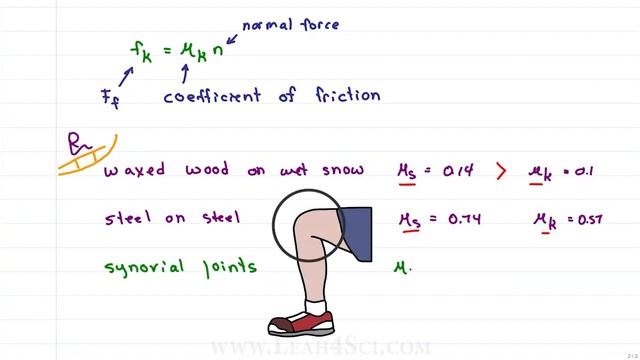 normal force
fₖ = μₖ n
F_f coefficient of friction
waxed wood on wet snow μₛ = 0.14 > μₖ = 0.1
steel on steel μₛ = 0.74 μₖ = 0.57
synovial joints μ.
www.Leah4Sci.com
2/2